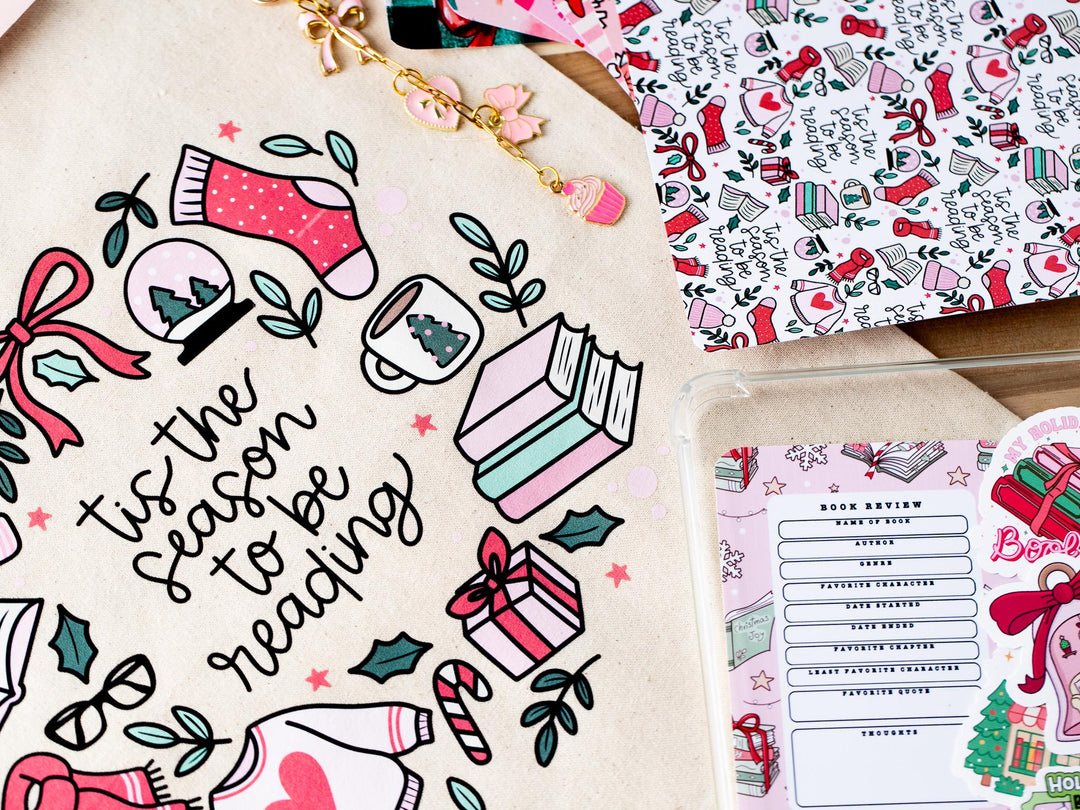 tis the
season
to be
reading
tis the
season
to be
reading
tis the
season
to be
reading
tis the
season
to be
reading
tis the
season
to be
reading
BOOK REVIEW
NAME OF BOOK
AUTHOR
GENRE
FAVORITE CHARACTER
DATE STARTED
DATE ENDED
FAVORITE CHAPTER
LEAST FAVORITE CHARACTER
FAVORITE QUOTE
THOUGHTS
Christmas
Joy
MY HOLIDA
Book
HO